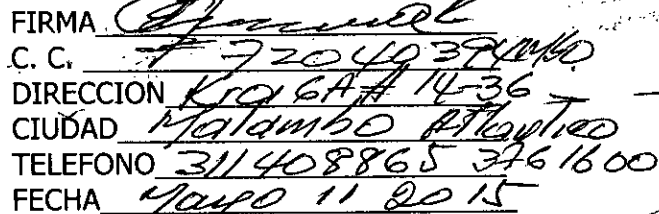 FIRMA
C. C. 72040394
DIRECCION Kra 6A # 14-36
CIUDAD Malambo Atlantico
TELEFONO 311408865 3761600
FECHA Mayo 11 2015